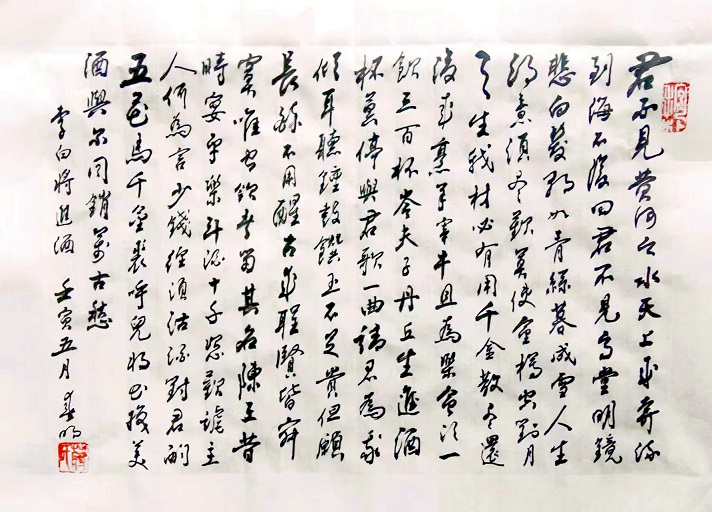 君不見黄河之水天上來奔流
到海不復回君不見高堂明鏡
悲白髮朝如青絲暮成雪人生
得意須盡歡莫使金樽空對月
天生我材必有用千金散盡還
復來烹羊宰牛且為樂會須一
飲三百杯岑夫子丹丘生進酒
杯莫停與君歌一曲請君為我
傾耳聽鍾鼓饌玉不足貴但願
長醉不用醒古來聖賢皆寂
寞唯有飲者留其名陳王昔
時宴平樂斗酒十千恣歡謔主
人何為言少錢徑須沽酒對君酌
五花馬千金裘呼兒將出換美
酒與尔同銷萬古愁
李白將進酒 壬寅五月 春明